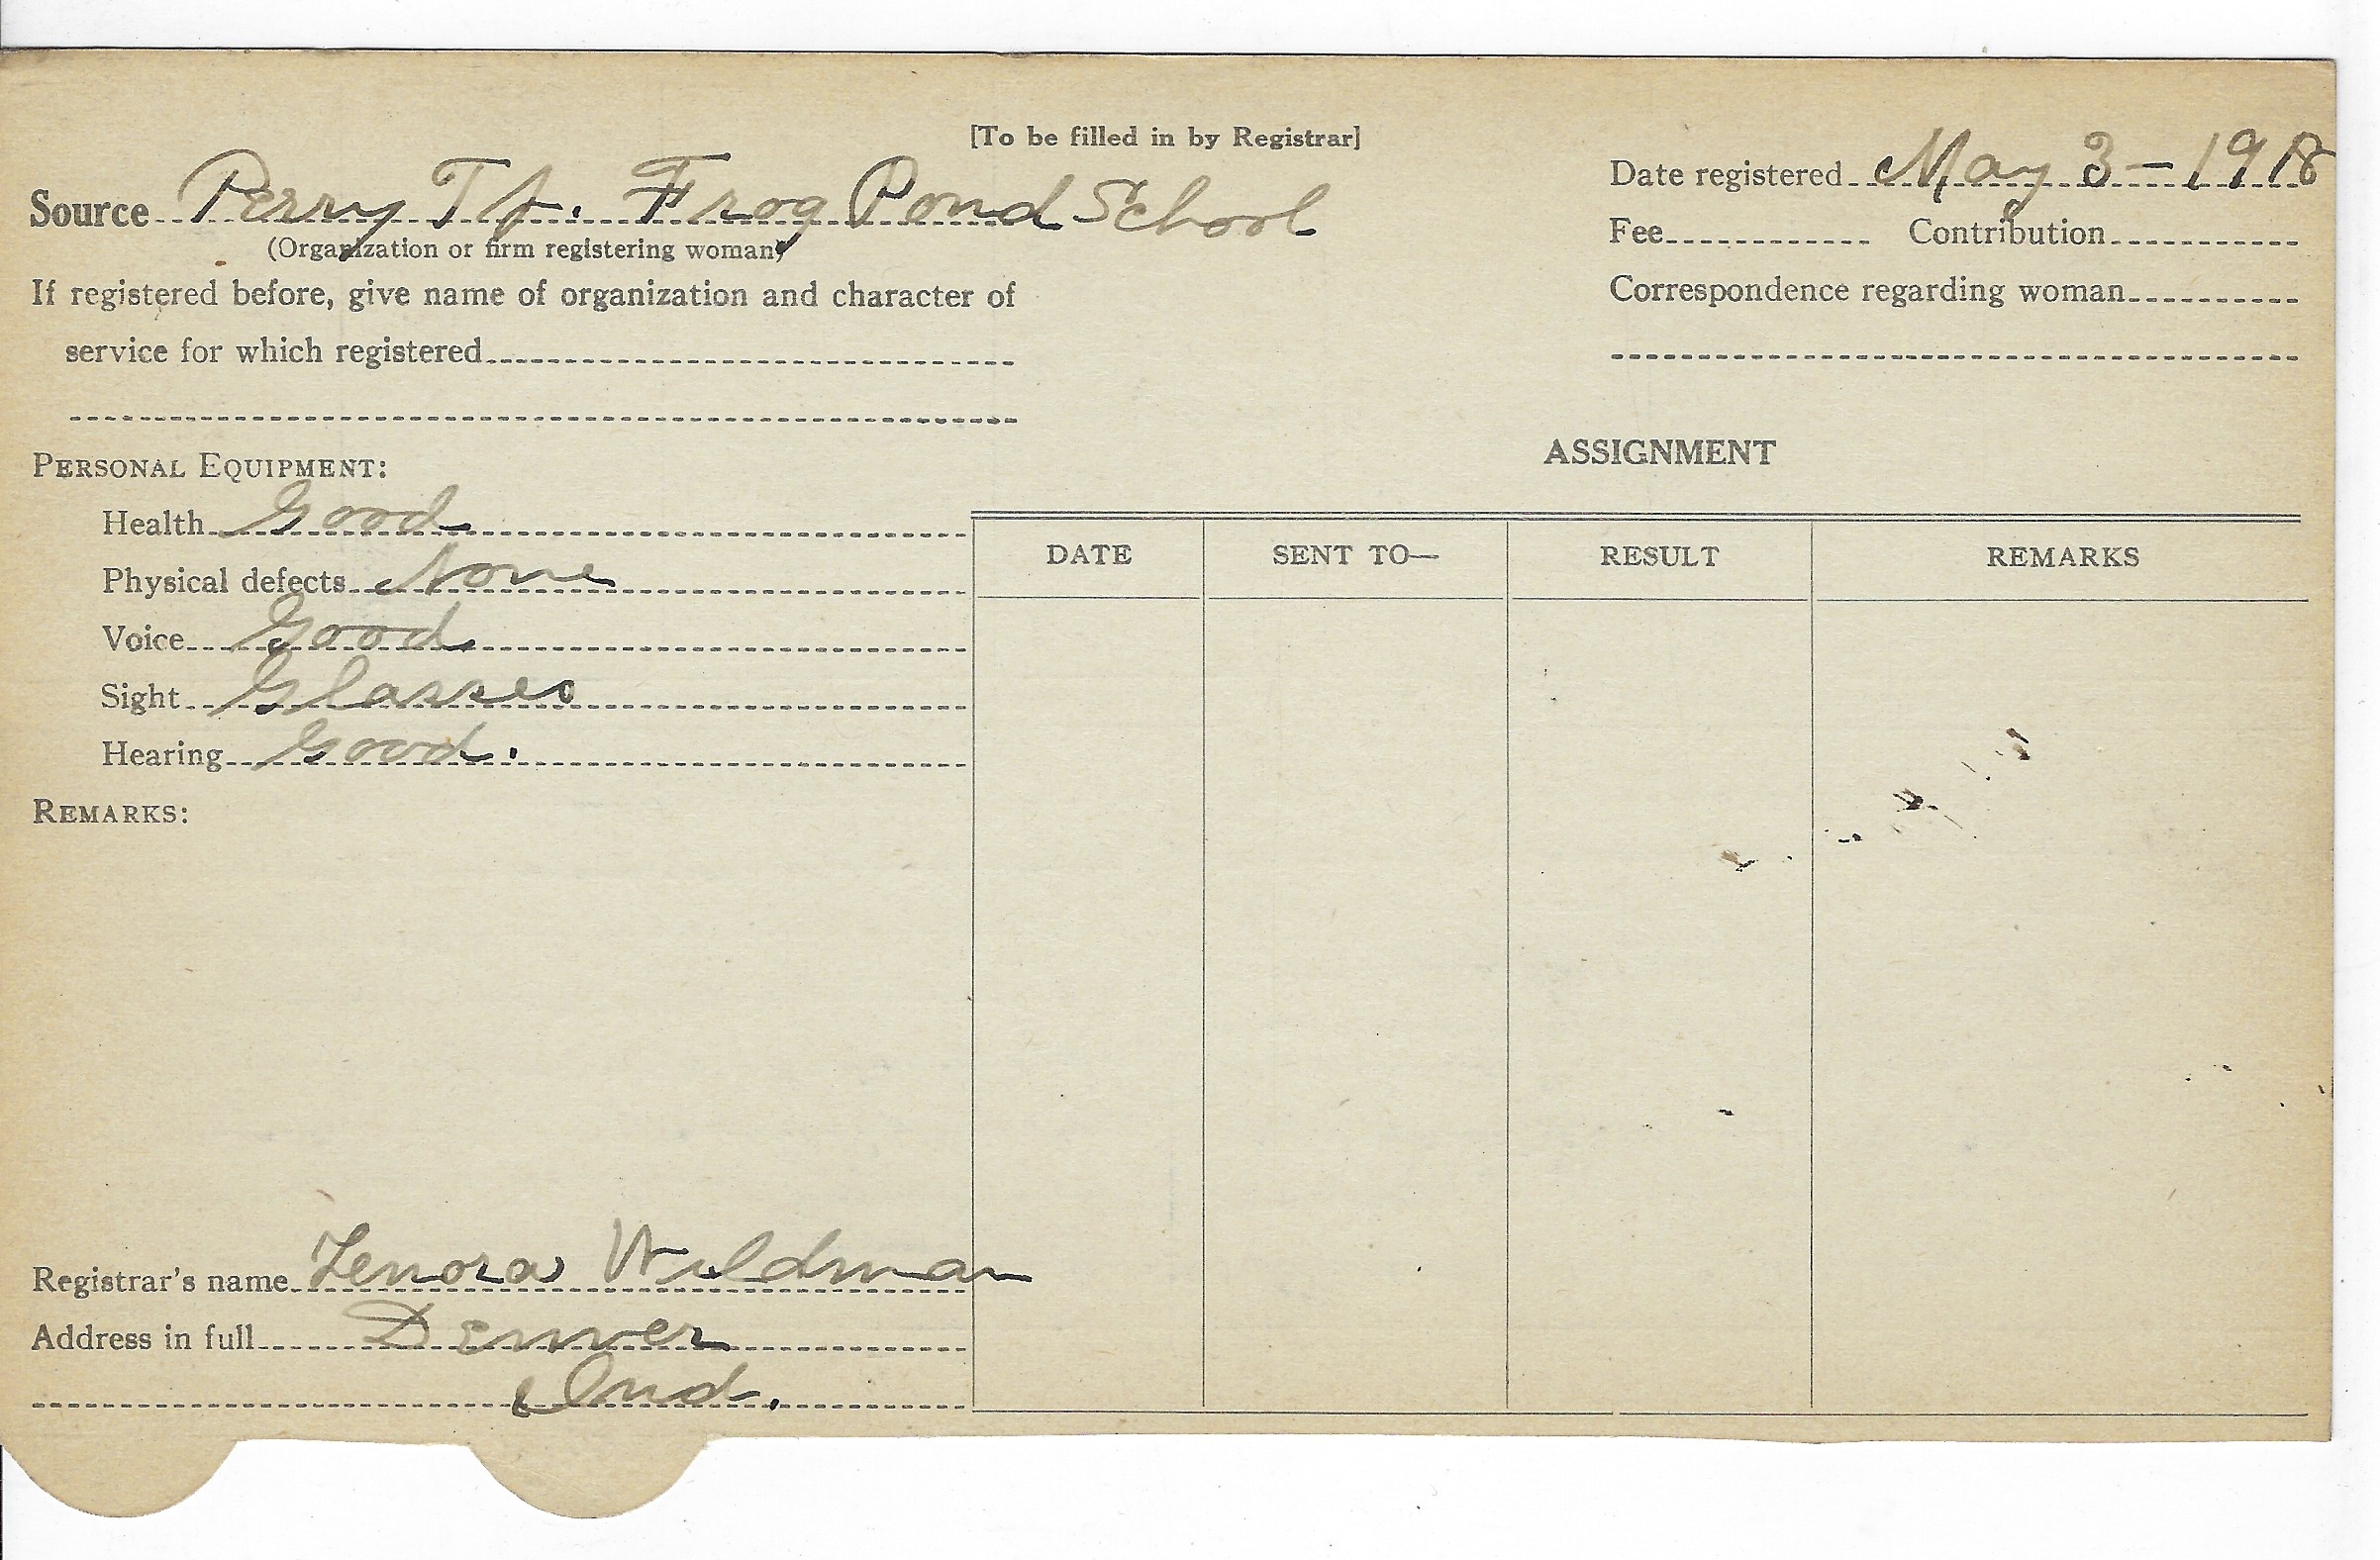 [To be filled in by Registrar]
Source Perry Tp. Frog Pond School
(Organization or firm registering woman)
If registered before, give name of organization and character of
service for which registered
Date registered May 3 - 1918
Fee Contribution
Correspondence regarding woman
PERSONAL EQUIPMENT:
Health Good
Physical defects None
Voice Good
Sight Glasses
Hearing Good.
REMARKS:
Registrar's name Lenora Wildman
Address in full Denver
Ind.
ASSIGNMENT
DATE SENT TO— RESULT REMARKS